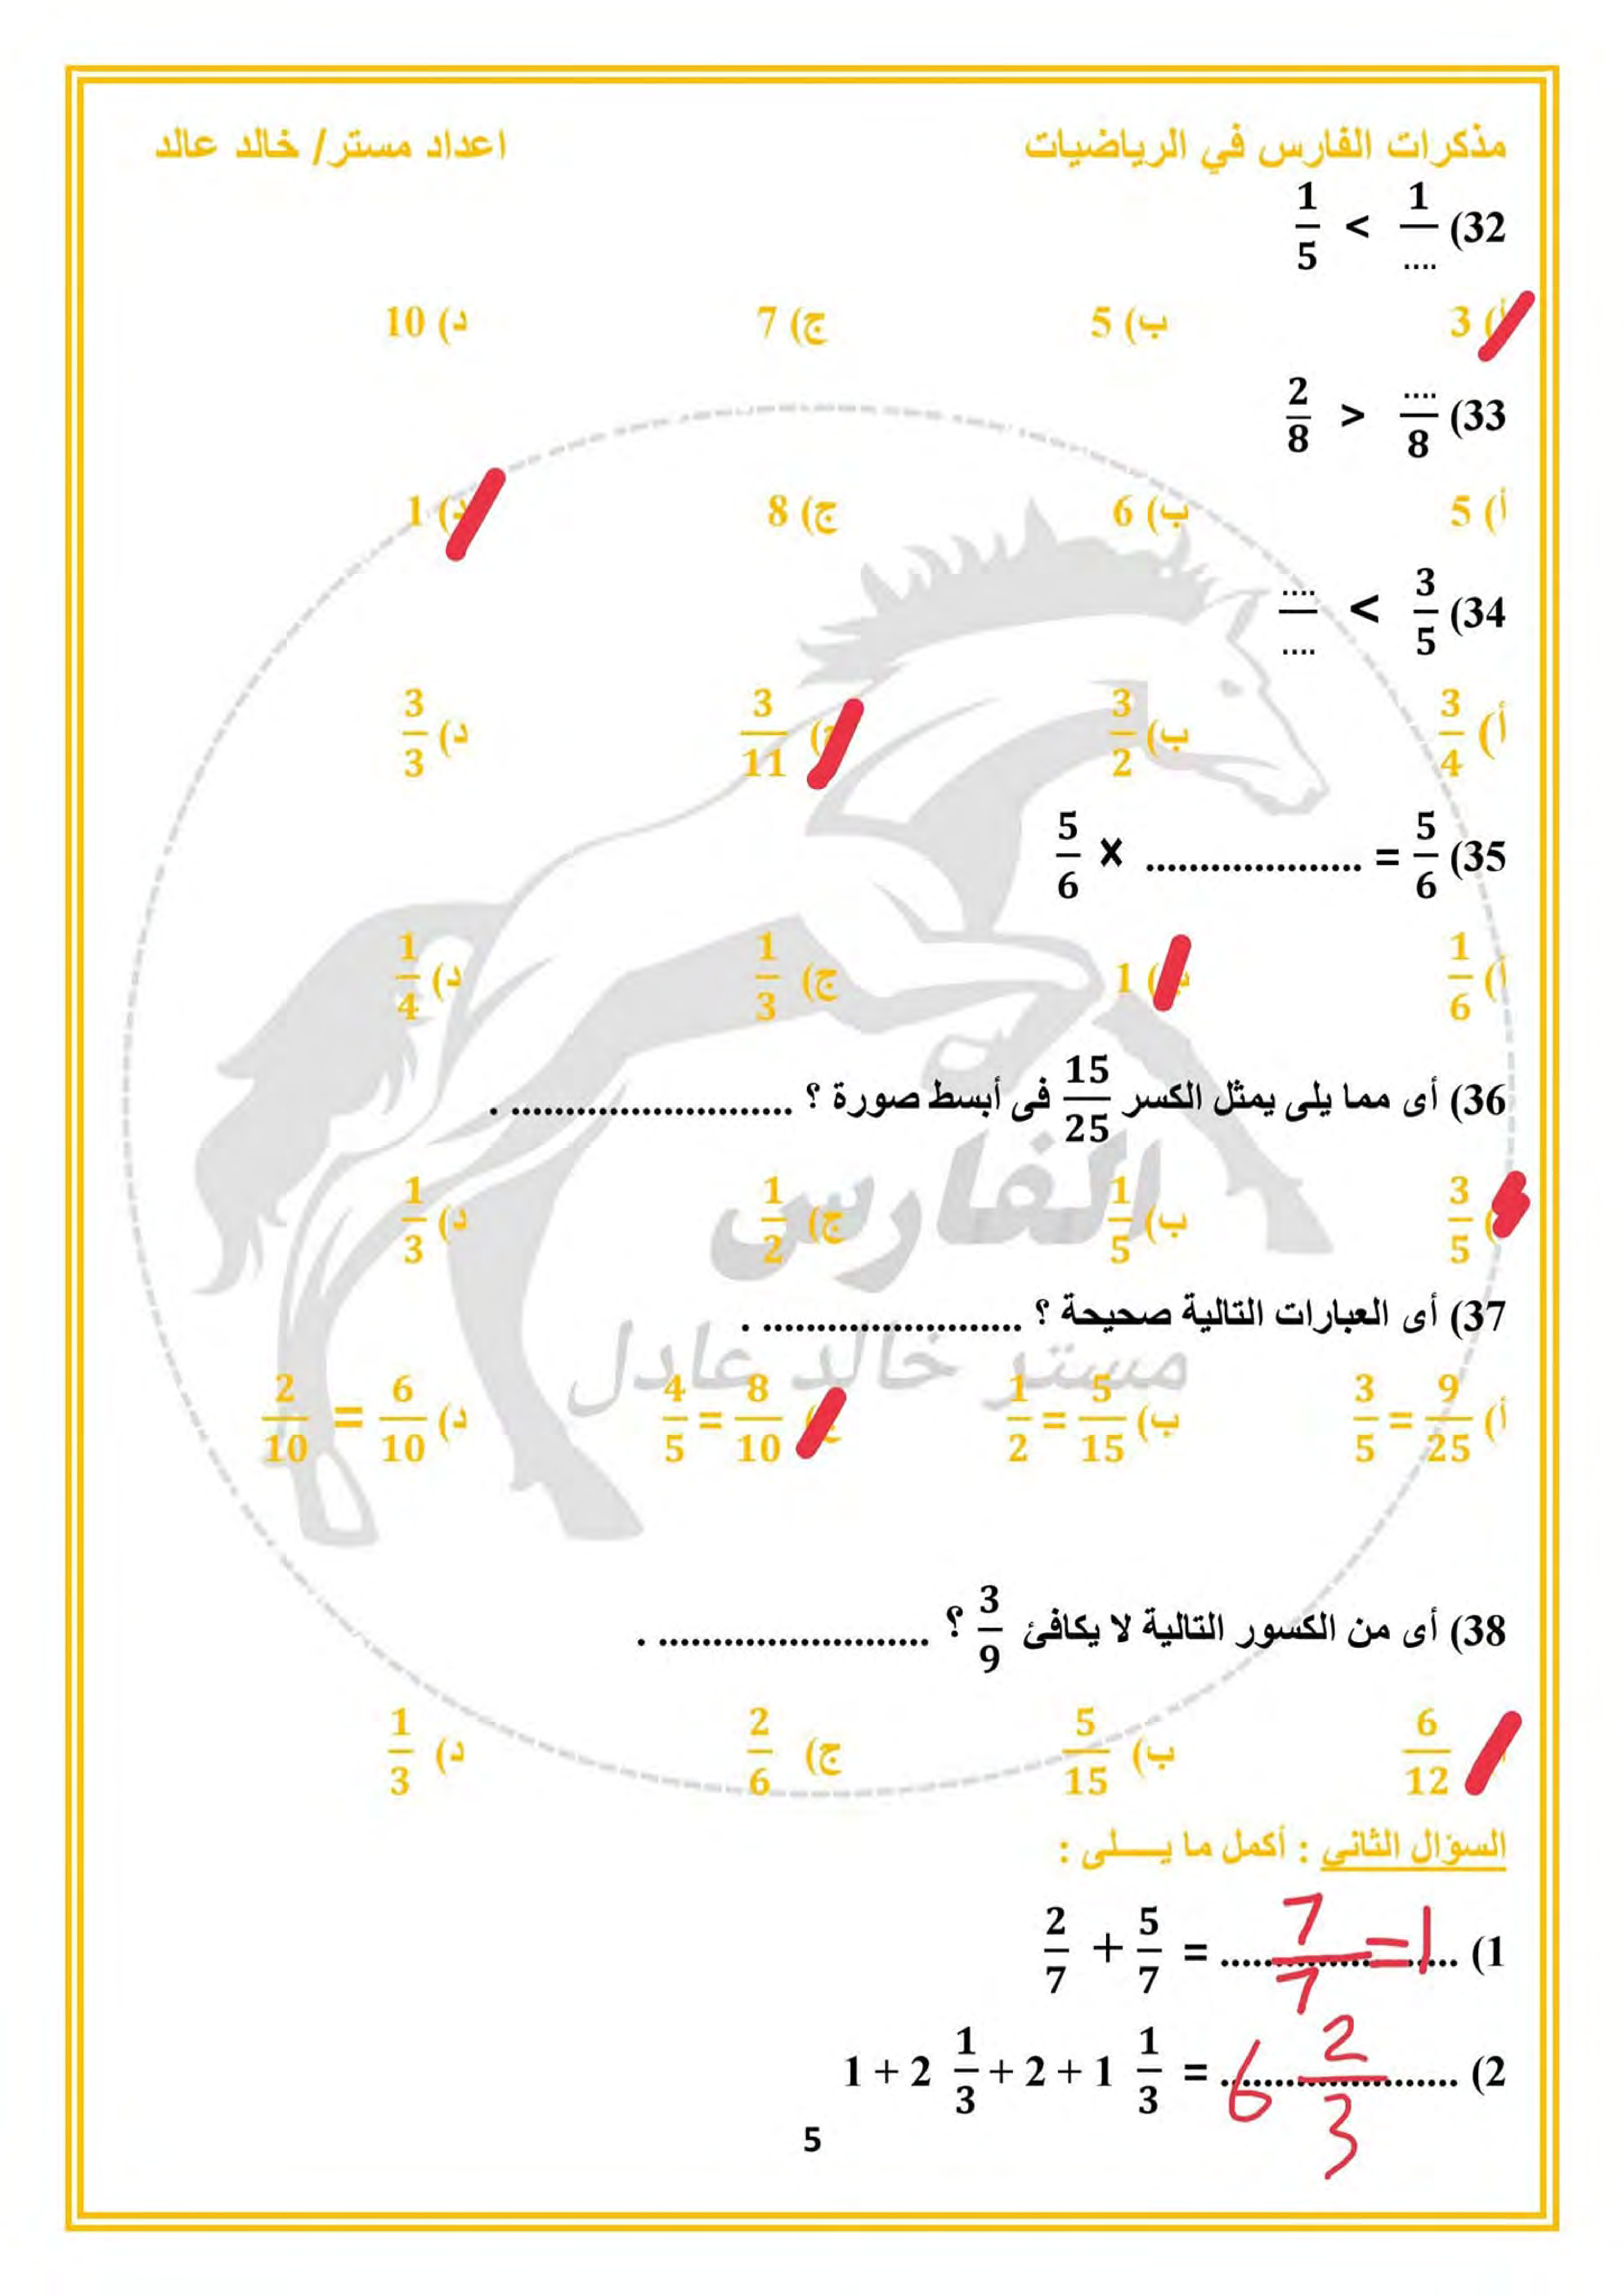 مذكرات الفارس في الرياضيات اعداد مستر/ خالد عالد
32) 1/.... > 1/5
أ) 3 ب) 5 ج) 7 د) 10
33) ..../8 < 2/8
أ) 5 ب) 6 ج) 8 د) 1
34) 3/5 > ..../....
أ) 3/4 ب) 3/2 ج) 3/11 د) 3/3
35) 5/6 = .................... × 5/6
أ) 1/6 ب) 1 ج) 1/3 د) 1/4
36) أى مما يلى يمثل الكسر 15/25 فى أبسط صورة ؟ .......................... .
أ) 3/5 ب) 1/5 ج) 1/2 د) 1/3
الفارس
37) أى العبارات التالية صحيحة ؟ ........................ .
مستر خالد عادل
أ) 9/25 = 3/5 ب) 5/15 = 1/2 ج) 8/10 = 4/5 د) 6/10 = 2/10
38) أى من الكسور التالية لا يكافئ 3/9 ؟ ......................... .
6/12 ب) 5/15 ج) 2/6 د) 1/3
السؤال الثاني : أكمل ما يـــــلى :
1) 2/7 + 5/7 = 7/7 = 1
2) 1 + 2 1/3 + 2 + 1 1/3 = 6 2/3
5